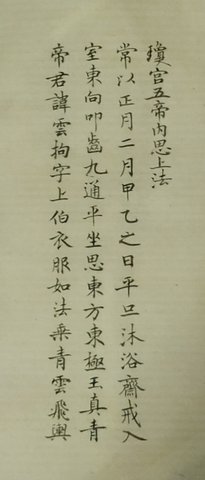 瓊宮五帝內思上法
常以正月二月甲乙之日平旦沐浴齋戒入
室東向叩齒九通平坐思東方東極玉真青
帝君諱雲拘字上伯衣服如法乗青雲飛輿